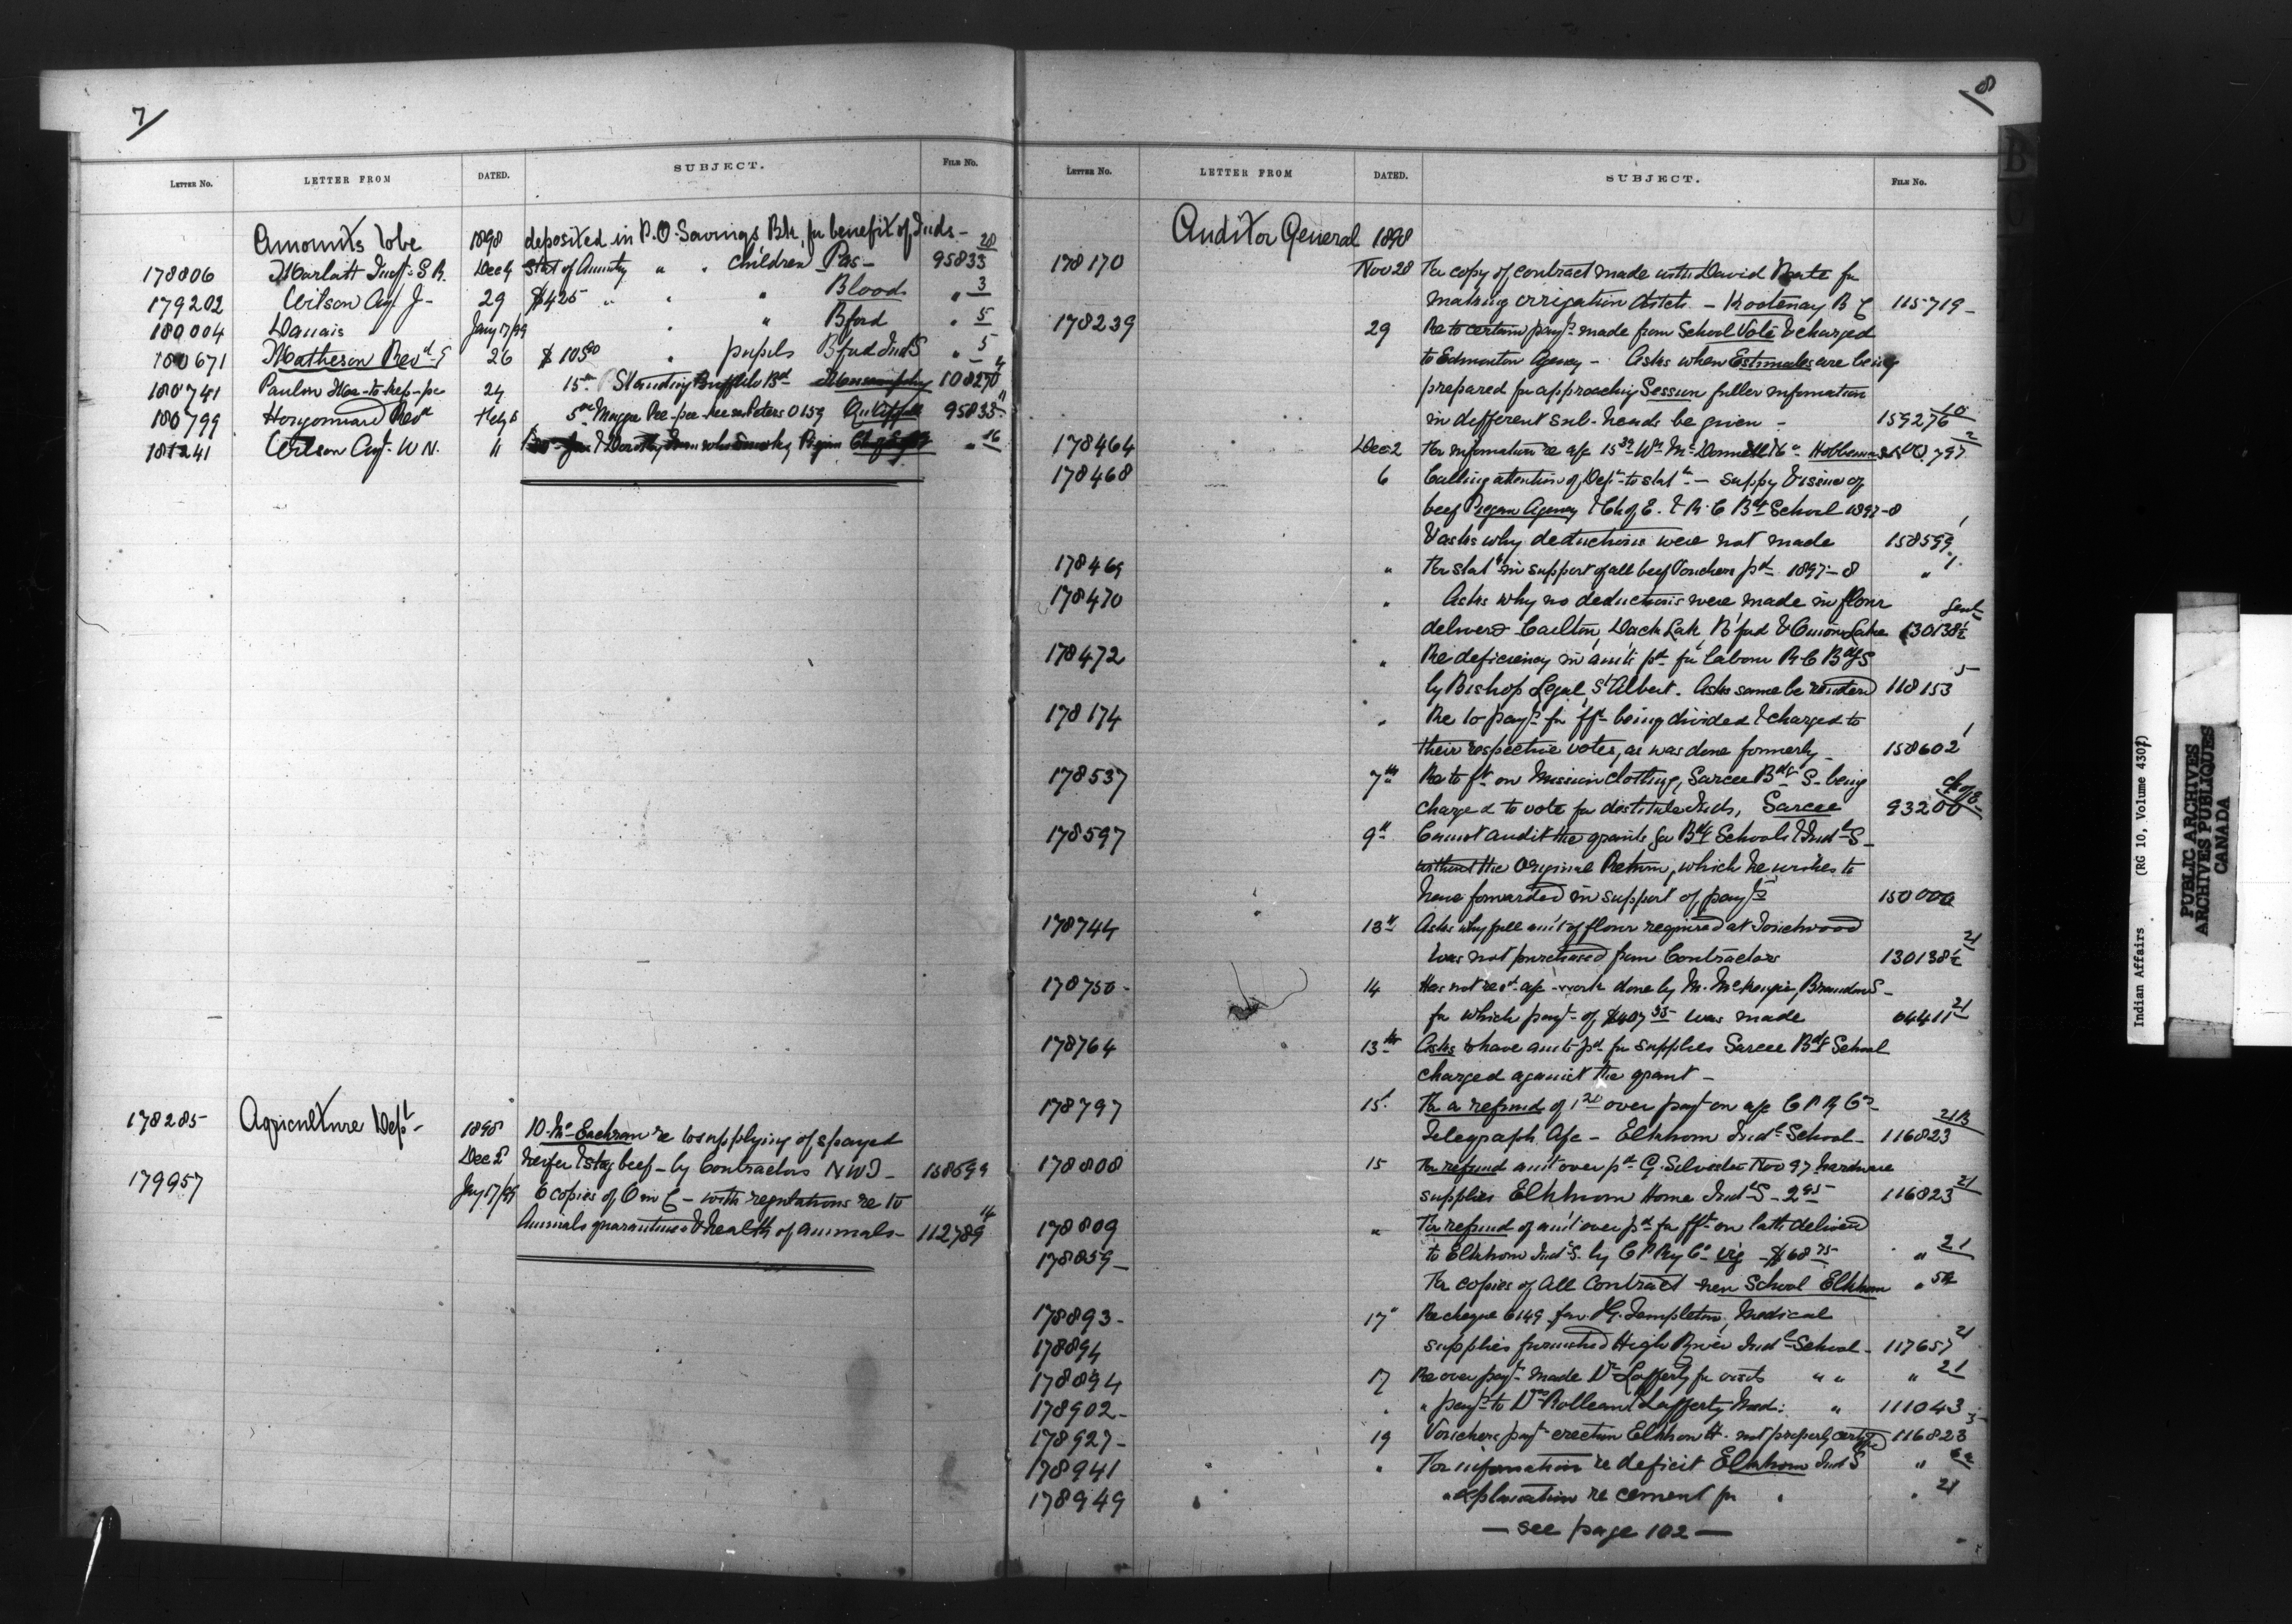 7
LETTER NO. LETTER FROM DATED. SUBJECT. FILE NO.
Amounts to be 1898 deposited in P.O. Savings Bk. for benefit of Inds - 28
178806 Marlatt Insp. S.R. Dec 9 Stat of Annuity " " Children Pas - 95833
179202 Wilson Agt J- 29 $425 " " " Blood " 3
180004 Danais Jany 17/99 " " Bford " 5
180671 Matheson Revd E 26 $105.00 " pupils Bford Ind S " 5
180741 24 15.00 Standing Buffalo Bd 108270
180799 Revd Feby 6 5.00 Maggie Peters 0159 Qu'Appelle 95833
181241 Wilson Agt. W N. " " 16
178285 Agriculture Dept - 1898 D. McEachran re to supplying of spayed
Dec 2 heifer & stag beef - by Contractors NWT - 158599
179957 Jany 17/99 6 copies of O in C - with regulations re to
Animals quarantines & health of animals - 112789 14
8
LETTER NO. LETTER FROM DATED. SUBJECT. FILE NO.
Auditor General 1898
178170 Nov 28 For copy of contract made with David for
making irrigation ditch - Kootenay B C 115719 -
178239 29 Re to certain payts made from School Vote & charged
to Edmonton Agency - Asks when Estimates are being
prepared for approaching Session fuller information
in different sub-heads be given - 159276 10
178464 Dec 2 For information re a/c 15.39 Wm McDonnell Hobbema 797 2
178468 6 Calling attention of Dept to statt - supply & issue of
beef Piegan Agency & Ch of E. & R.C Bdg School 1897-8
& asks why deductions were not made 158599 1
178469 " For statt in support of all beef Vouchers pd 1897-8 " 1
178470 " Asks why no deductions were made in flour
delivered Carlton, Duck Lake, B'ford & Onion Lake 130138½
178472 " Re deficiency in amts pd for labour R C Bdg S
by Bishop Legal, St Albert. Asks same be 118153 5
178174 " Re to payts for fft being divided & charged to
their respective votes, as was done formerly - 158602 1
178537 7th Re to ft on Mission clothing, Sarcee Bdg S- being
charged to vote for destitute Inds, Sarcee 93200
178597 9th Cannot audit the grants for Bdg Schools & Indl S-
without the Original Return, which he wishes to
have forwarded in support of payts 150000
178744 13th Asks why full amt of flour required at Touchwood
was not purchased from Contractors 130138½ 21
178750 - 14 Has not recd a/c work done by M. McKenzie, Brandon S -
for which payt of $407.35 was made 64411 21
178764 13th Asks to have amts pd for supplies Sarcee Bdg School
charged against the grant -
178797 15. For a refund of 1.20 over payt on a/c C P Ry Co -
Telegraph A/c - Elkhorn Indl School - 116823 21B
178808 15 For refund amt over pd G. Silvester Nov 97 hardware
supplies Elkhorn Home Indl S - 2.95 116823 21
178809 " For refund of amt over pd for fft on lath delivered
178859 - to Elkhorn Indl S. by C P Ry Co viz $68.75 " 21
For copies of all Contract new School Elkhorn "
178893 - 17" Re cheque 6149 for H. Templeton, Medical
178894 supplies furnished High River Indl School - 117657 21
178894 17 Re over payt made Dr Lafferty for visits " " " 21
178902 - " " payt to Drs Rolleau & Lafferty Med: " 111043
178927 - 19 Vouchers payt erection Elkhorn H. not properly certified 116823
178941 " For information re deficit Elkhorn Ind S "
178949 " explanation re cement for " " 21
— see page 102 —
B
C
Indian Affairs (RG 10, Volume 4307)
PUBLIC ARCHIVES
ARCHIVES PUBLIQUES
CANADA